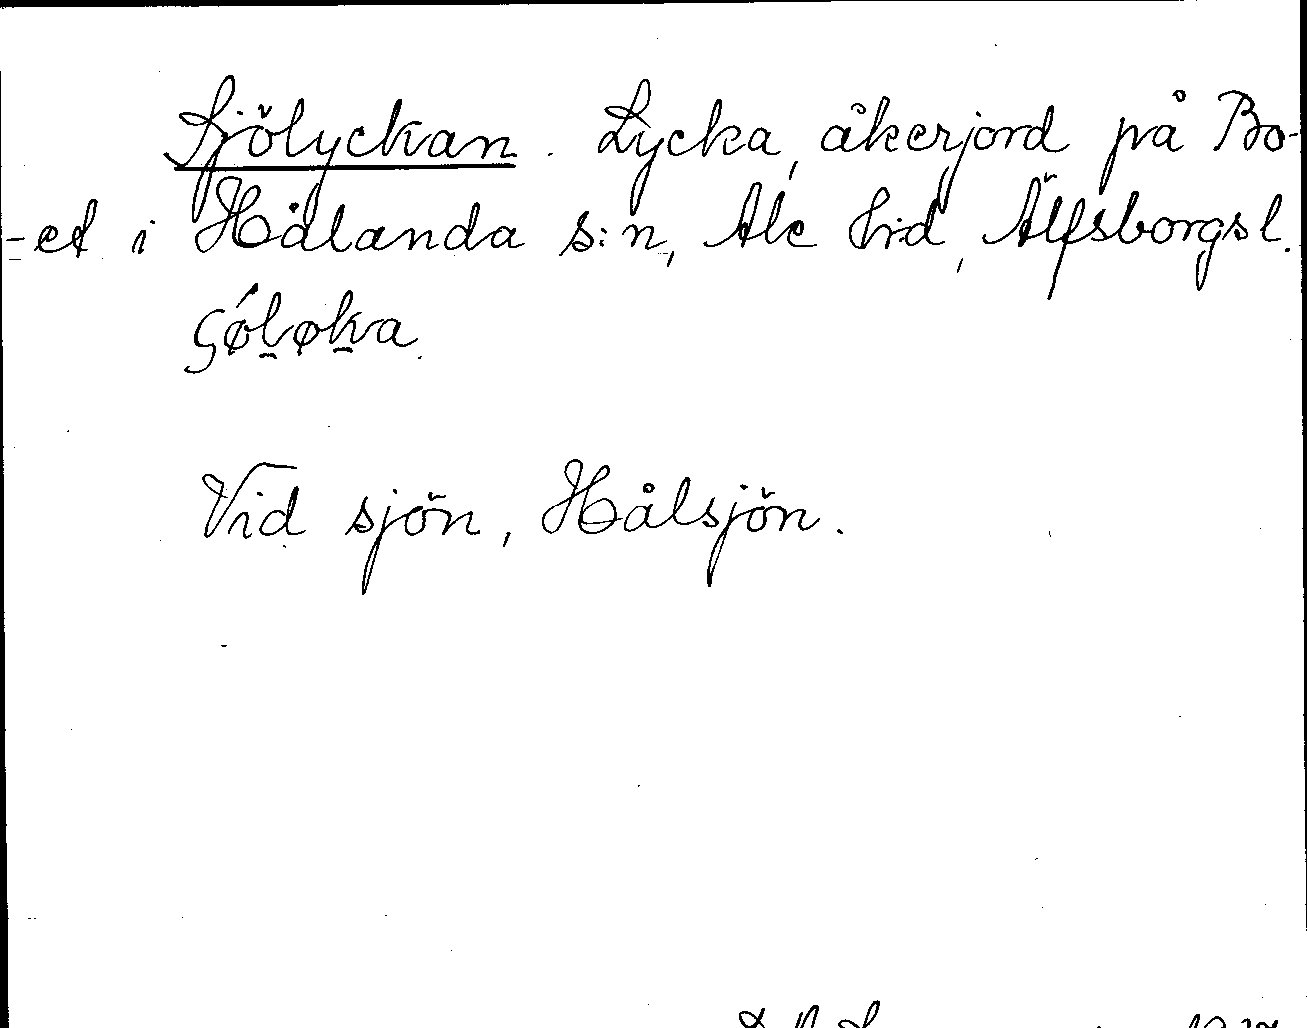 Sjölyckan. Lycka, åkerjord på Bo-
-et i Hålanda s:n, Ale hrd, Älfsborgsl.
Vid sjön, Hålsjön.